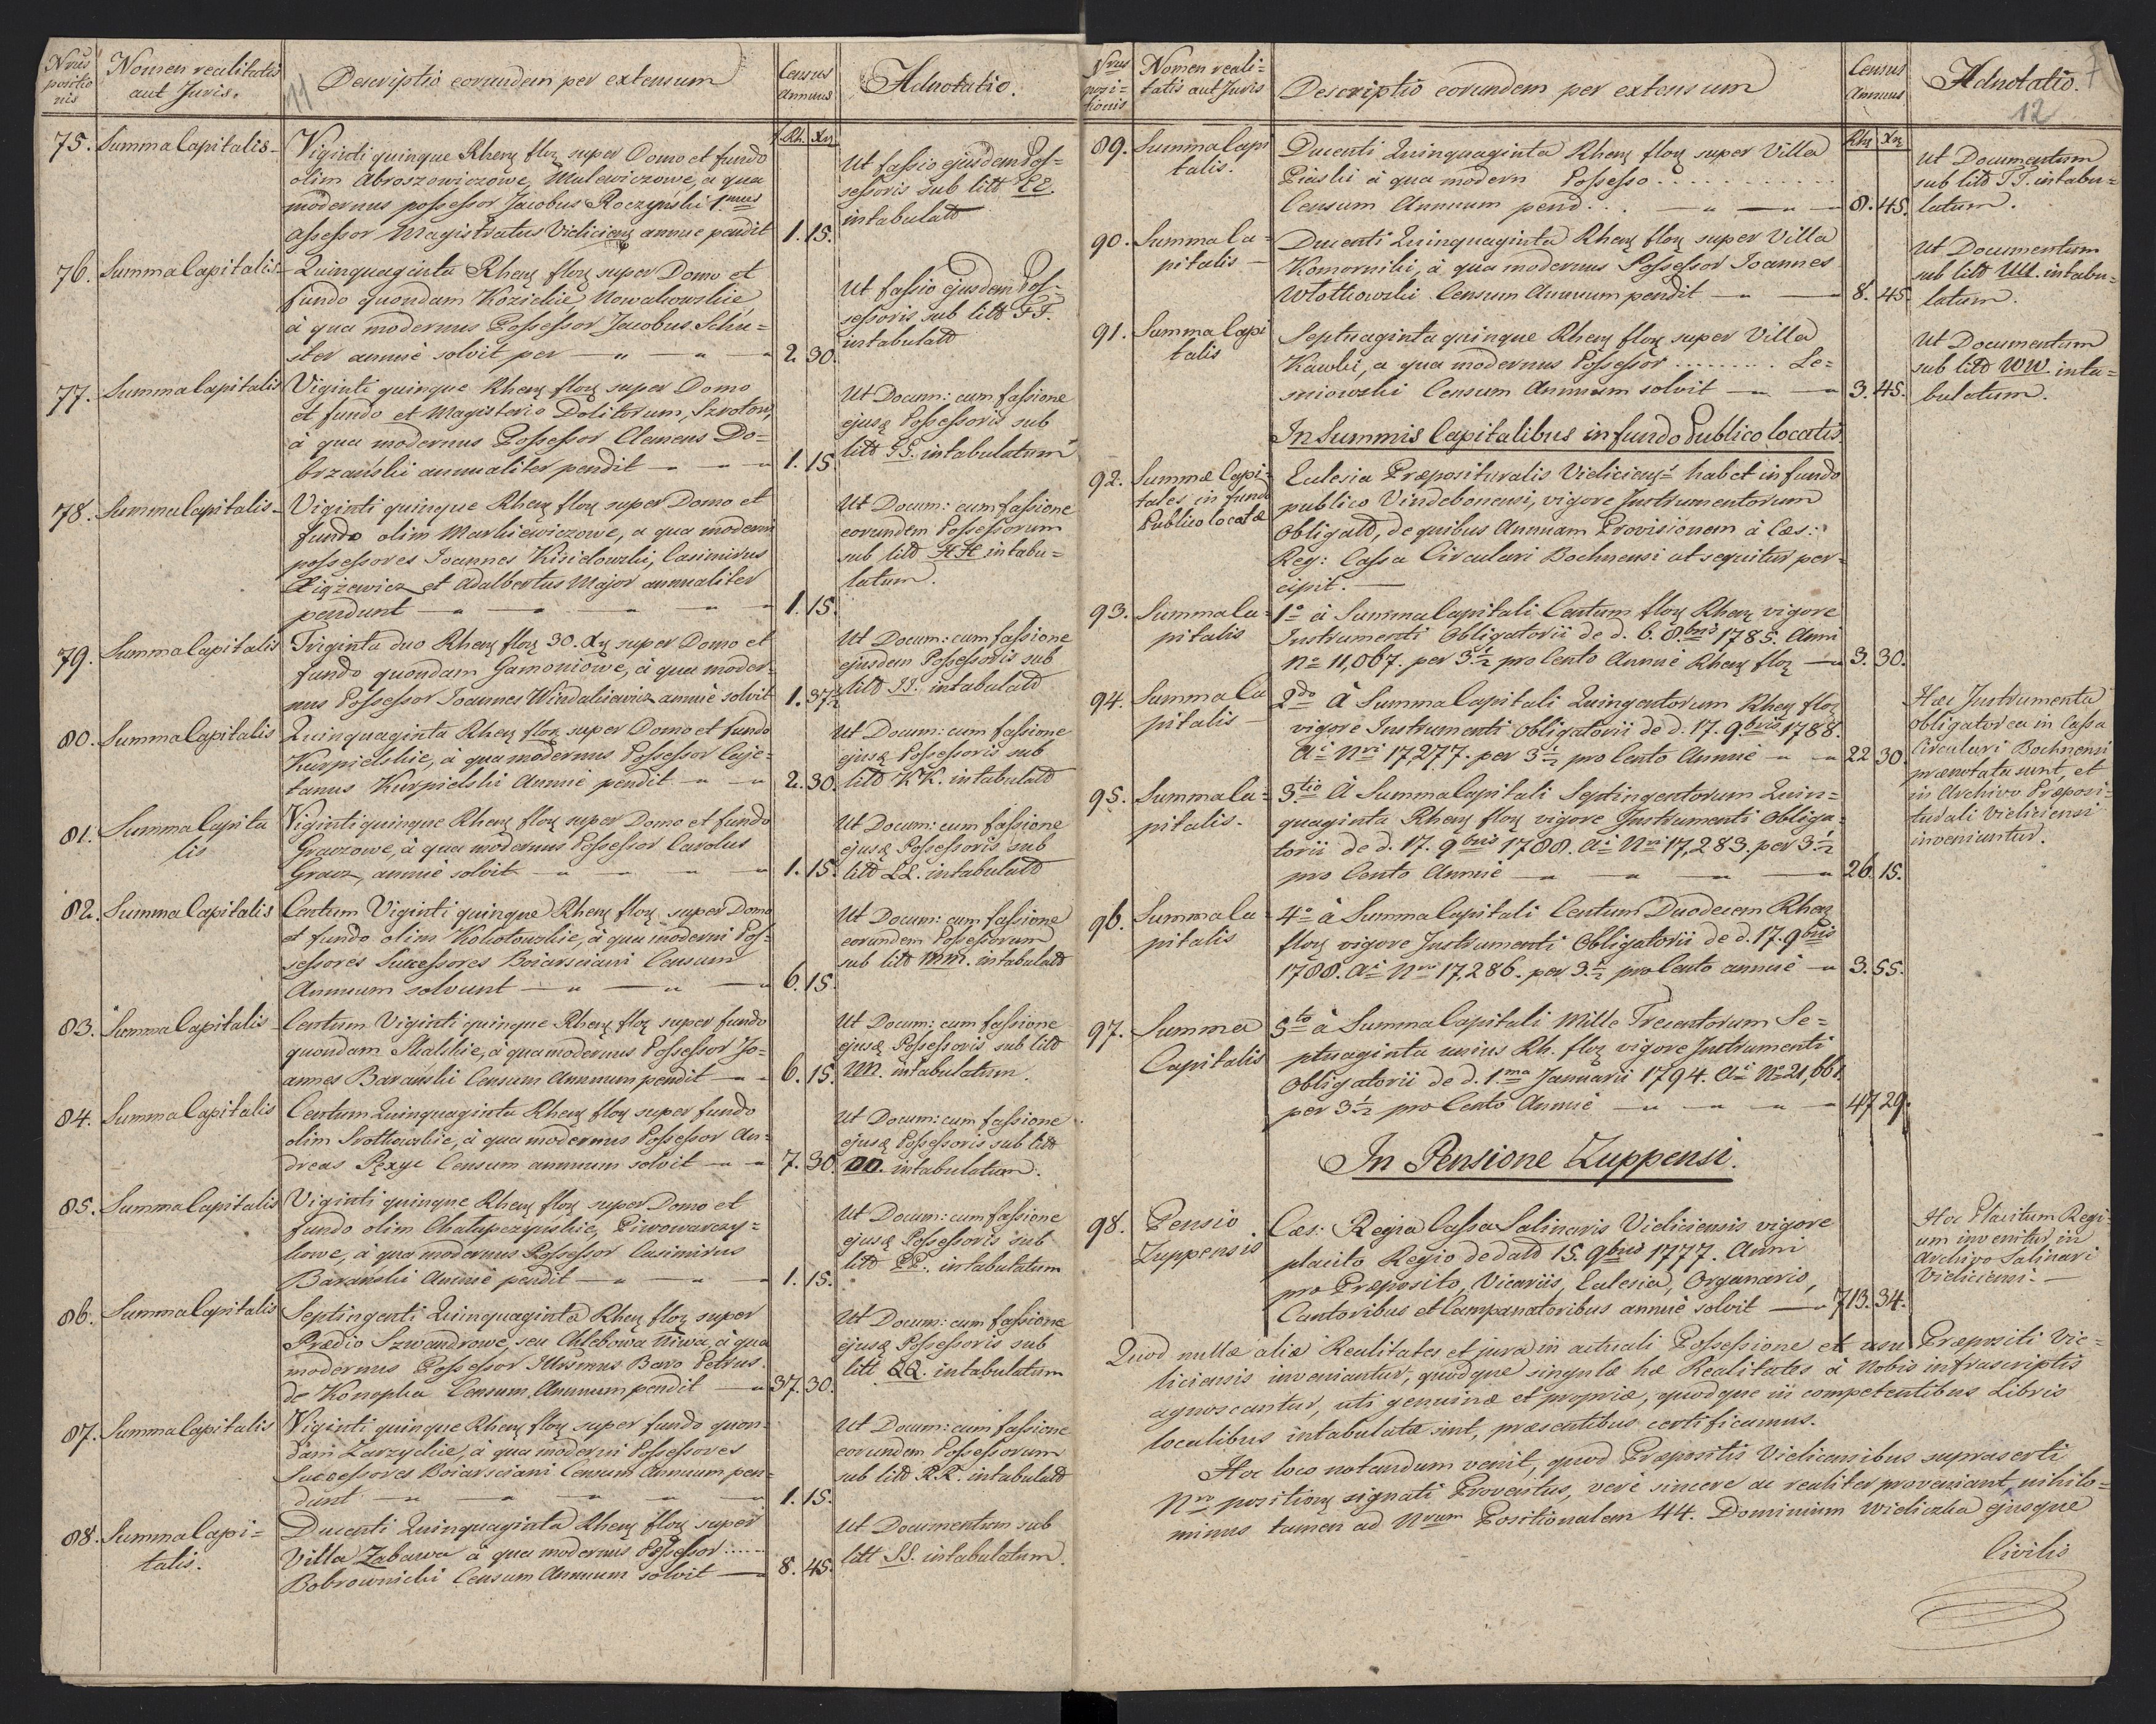 Nrus positionis
Nomen realitatis aut Juris.
11
Descriptio eorundem per extensum
Census Annuus
Adnotatio.
f.Rh. Xr
75. Summa Capitalis
Viginti quinque Rhen flor super Domo et fundo
olim Abroszowiczowe, Mulewiczowe, a qua
modernus possessor Jacobus Roczynski 1mus
assessor Magistratus Vieliciens annue pendit
1. 15.
Ut fassio ejusdem Pos-
sessoris sub litt EE.
intabulatd
76. Summa Capitalis
Quinquaginta Rhen flor super Domo et
fundo quondam Kozickie Nowakowskie
à qua modernus Possessor Jacobus Schu=
ster annuè solvit per
2. 30.
Ut fassio ejusdem Pos-
sessoris sub litt FF.
intabulatd
77. Summa Capitalis
Viginti quinque Rhen flor super Domo
et fundo et Magisterio Dolitorum,
à qua modernus Possessor Clemens Do=
brzański annualiter pendit
1. 15.
Ut Docum: cum fassione
ejusq Possessoris sub
litt GG. intabulatum
78. Summa Capitalis
Viginti quinque Rhen flor super Domo et
fundo olim Markiewiczowe, a qua moderni
possessores Joannes Kisielowski, Casimirus
et Adalbertus Major annualiter
pendunt
1. 15.
Ut Docum: cum fassione
eorundem Possessorum
sub litt HH intabu=
latum.
79. Summa Capitalis
Triginta duo Rhen flor 30. Xr super Domo et
fundo quondam Gamoniowe, à qua moder-
nus Possessor Joannes Windakiewicz annuè solvit
1. 37½
Ut Docum: cum fassione
ejusdem Possessoris sub
litt II. intabulatd
80. Summa Capitalis
Quinquaginta Rhen flor super Domo et fundo
Kurpielskie, à qua modernus Possessor Caje-
tanus Kurpielski Annuè pendit
2. 30.
Ut Docum: cum fassione
ejusq Possessoris sub
litt KK. intabulatd
81. Summa Capita
lis
Viginti quinque Rhen flor super Domo et fundo
Grauzowe, à qua modernus Possessor Carolus
Grauz, annuè solvit
1. 15.
Ut Docum: cum fassione
ejusq Possessoris sub
litt LL. intabulatd
82. Summa Capitalis
Centum Viginti quinque Rhen flor super Domo
et fundo olim Kokotowskie, à qua moderni Pos-
sessores Successores Boiarsciani Censum
Annuum solvunt
6. 15.
Ut Docum: cum fassione
eorundem Possessorum
sub litt MM. intabulatd
83. Summa Capitalis
Centum Viginti quinque Rhen flor super fundo
quondam Skalskie, à qua modernus Possessor Jo-
annes Barański Censum Annuum pendit
6. 15.
Ut Docum: cum fassione
ejusq Possessoris sub litt
NN. intabulatum.
84. Summa Capitalis
Centum Quinquaginta Rhen flor super fundo
olim Srotkowskie, à qua modernus Possessor An-
dreas Pęxyc Censum annuum solvit
7. 30.
Ut Docum: cum fassione
ejusq Possessoris sub litt
OO. intabulatum.
85. Summa Capitalis
Viginti quinque Rhen flor super Domo et
fundo olim Chalupczynskie, Piwowarczy=
kowe, à qua modernus Possessor Casimirus
Barański Annuè pendit
1. 15.
Ut Docum: cum fassione
ejusq Possessoris sub
litt PP. intabulatum
86. Summa Capitalis
Septingenti Quinquaginta Rhen flor super
Prædio Szwandrowe, seu Chlebowa Niwa, à qua
modernus Possessor Illusmus Baro Petrus
de Konopka Censum Annuum pendit
37. 30.
Ut Docum: cum fassione
ejusq Possessoris sub
litt QQ. intabulatum
87. Summa Capitalis
Viginti quinque Rhen flor super fundo quon-
dam Zarzyckie, à qua moderni Possessores
Successores Boiarsciani Censum Annuum pen-
dunt
1. 15.
Ut Docum: cum fassione
eorundem Possessorum
sub litt RR. intabulatd
88. Summa Capi=
talis.
Ducenti Quinquaginta Rhen flor super
Villa Zabawa à qua modernus Possessor ......
Bobrownicki Censum Annuum solvit
8. 45.
Ut Documentum sub
litt SS. intabulatum.
Nrus posi=tionis
Nomen reali=tatis aut Juris
Descriptio eorundem per extensum
Census Annuus
Adnotatio.
7
12
Rhn Xr
89. Summa Capi
talis.
Ducenti Quinquaginta Rhen flor super Villa
Piaski à qua modern Possesso ............
Censum Annuum pend...
8. 45.
Ut Documentum
sub litt TT. intabu=
latum.
90. Summa Ca=
pitalis
Ducenti Quinquaginta Rhen flor super Villa
Komorniki, à qua modernus Possessor Joannes
Wlotkowski Censum Annuum pendit
8. 45.
Ut Documentum
sub litt UU. intabu=
latum.
91. Summa Capi
talis
Septuaginta quinque Rhen flor super Villa
Kawki, a qua modernus Possessor ......... Le=
sniowski Censum Annuum solvit
3. 45.
Ut Documentum
sub litt WW. inta=
bulatum.
In Summis Capitalibus in fundo Publico locatis.
92. Summæ Capi=
tales in fundo
Publico locatæ
Eclesia Præposituralis Vieliciens habet in fundo
publico Vindobonensi, vigore Instrumentorum
Obligatd, de quibus Annuam Provisionem à Cæs:
Reg: Cassa Circulari Bochnensi ut sequitur per-
cipit.
93. Summa Ca=
pitalis
1o à Summa Capitali Centum flor Rhen vigore
Instrumenti Obligatorii de d. 6. 8bris 1785. Anni
No 11,067. per 3½ pro Cento Annuè Rhen flor
3. 30.
94. Summa Ca
pitalis
2do à Summa Capitali Quingentorum Rhen flor
vigore Instrumenti Obligatorii de d. 17. 9bris 1788.
Ai Nri 17,277. per 3½ pro Cento Annuè
22 30.
Hæc Instrumenta
Obligatorea in Cassa
Circulari Bochnensi
prænotata sunt, et
in Archivo Præposi-
turali Vieliciensi
inveniuntur.
95. Summa Ca=
pitalis.
3tio à Summa Capitali Septingentorum Quin=
quaginta Rhen flor vigore Instrumenti Obliga-
torii de d. 17. 9bris 1788. Ai Nri 17,283. per 3½
pro Cento Annuè
26. 15.
96. Summa Ca=
pitalis
4o à Summa Capitali Centum Duodecem Rhen
flor vigore Instrumenti Obligatorii de d. 17. 9bris
1788. Ai Nri 17,286. per 3½ pro Cento annuè
3. 55.
97. Summa
Capitalis
5to à Summa Capitali Mille Trecentorum Se=
ptuaginta unius Rh. flor vigore Instrumenti
Obligatorii de d. 1.ma Januarii 1794. Ai No 21,661.
per 3½ pro Cento Annuè
47 29.
In Pensione Zuppensi.
98. Pensio
Zuppensis
Cæs: Regia Cassa Salinaris Vieliciensis vigore
placito Regio de datd 15. 9bris 1777. Anni
pro Præposito, Vicariis, Eclesia, Organario,
Cantoribus et Campanatoribus annuè solvit
713. 34.
Hoc Placitum Regi-
um invenitur in
Archivo Salinari
Vieliciensi.
Quod nullæ aliæ Realitates et jura in actuali Possessione et usu Præpositi Vie=
liciensis inveniantur, quodque singulæ hæ Realitates à Nobis infrascriptis
agnoscantur, uti genuinæ et propriæ, quodque in competentibus Libris
localibus intabulatæ sint, præsentibus certificamus.
Hoc loco notandum venit, quod Præpositis Vieliciensibus suprascerti
Nro positiong signati Proventus, verè sincere ac realiter proveniant, nihilo=
minus tamen ad Nrum Positionalem 44. Dominium Wieliczka ejusque
Civilis